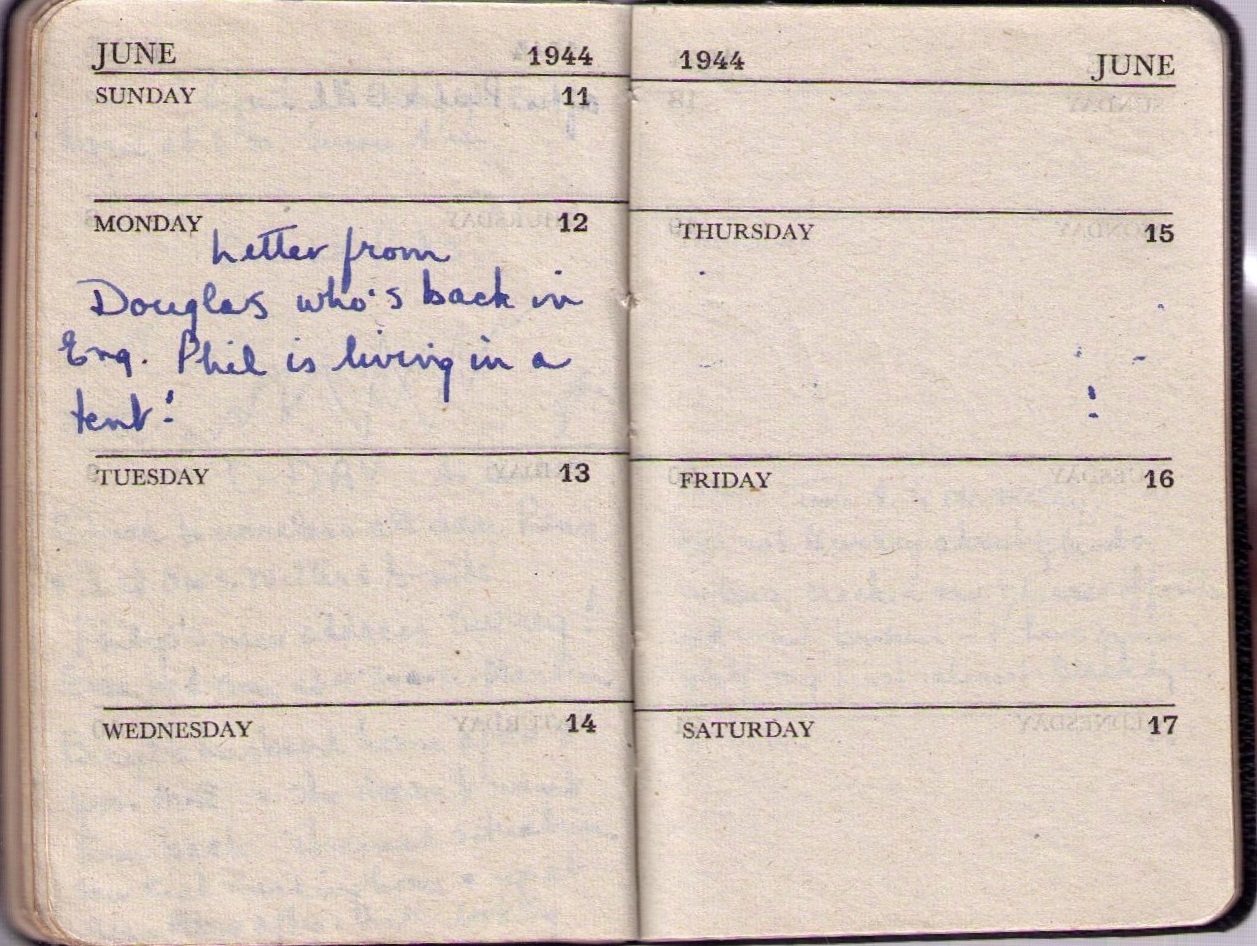 JUNE 1944
SUNDAY 11
MONDAY 12
Letter from
Douglas who's back in
Eng. Phil is living in a
tent!
TUESDAY 13
WEDNESDAY 14
1944 JUNE
THURSDAY 15
FRIDAY 16
SATURDAY 17